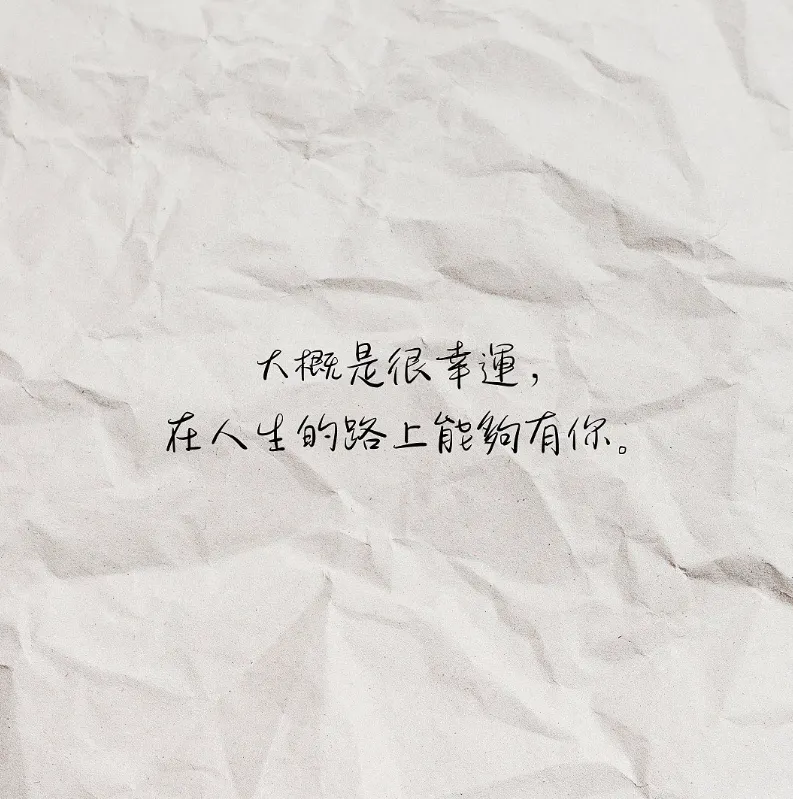 大概是很幸運，
在人生的路上能夠有你。